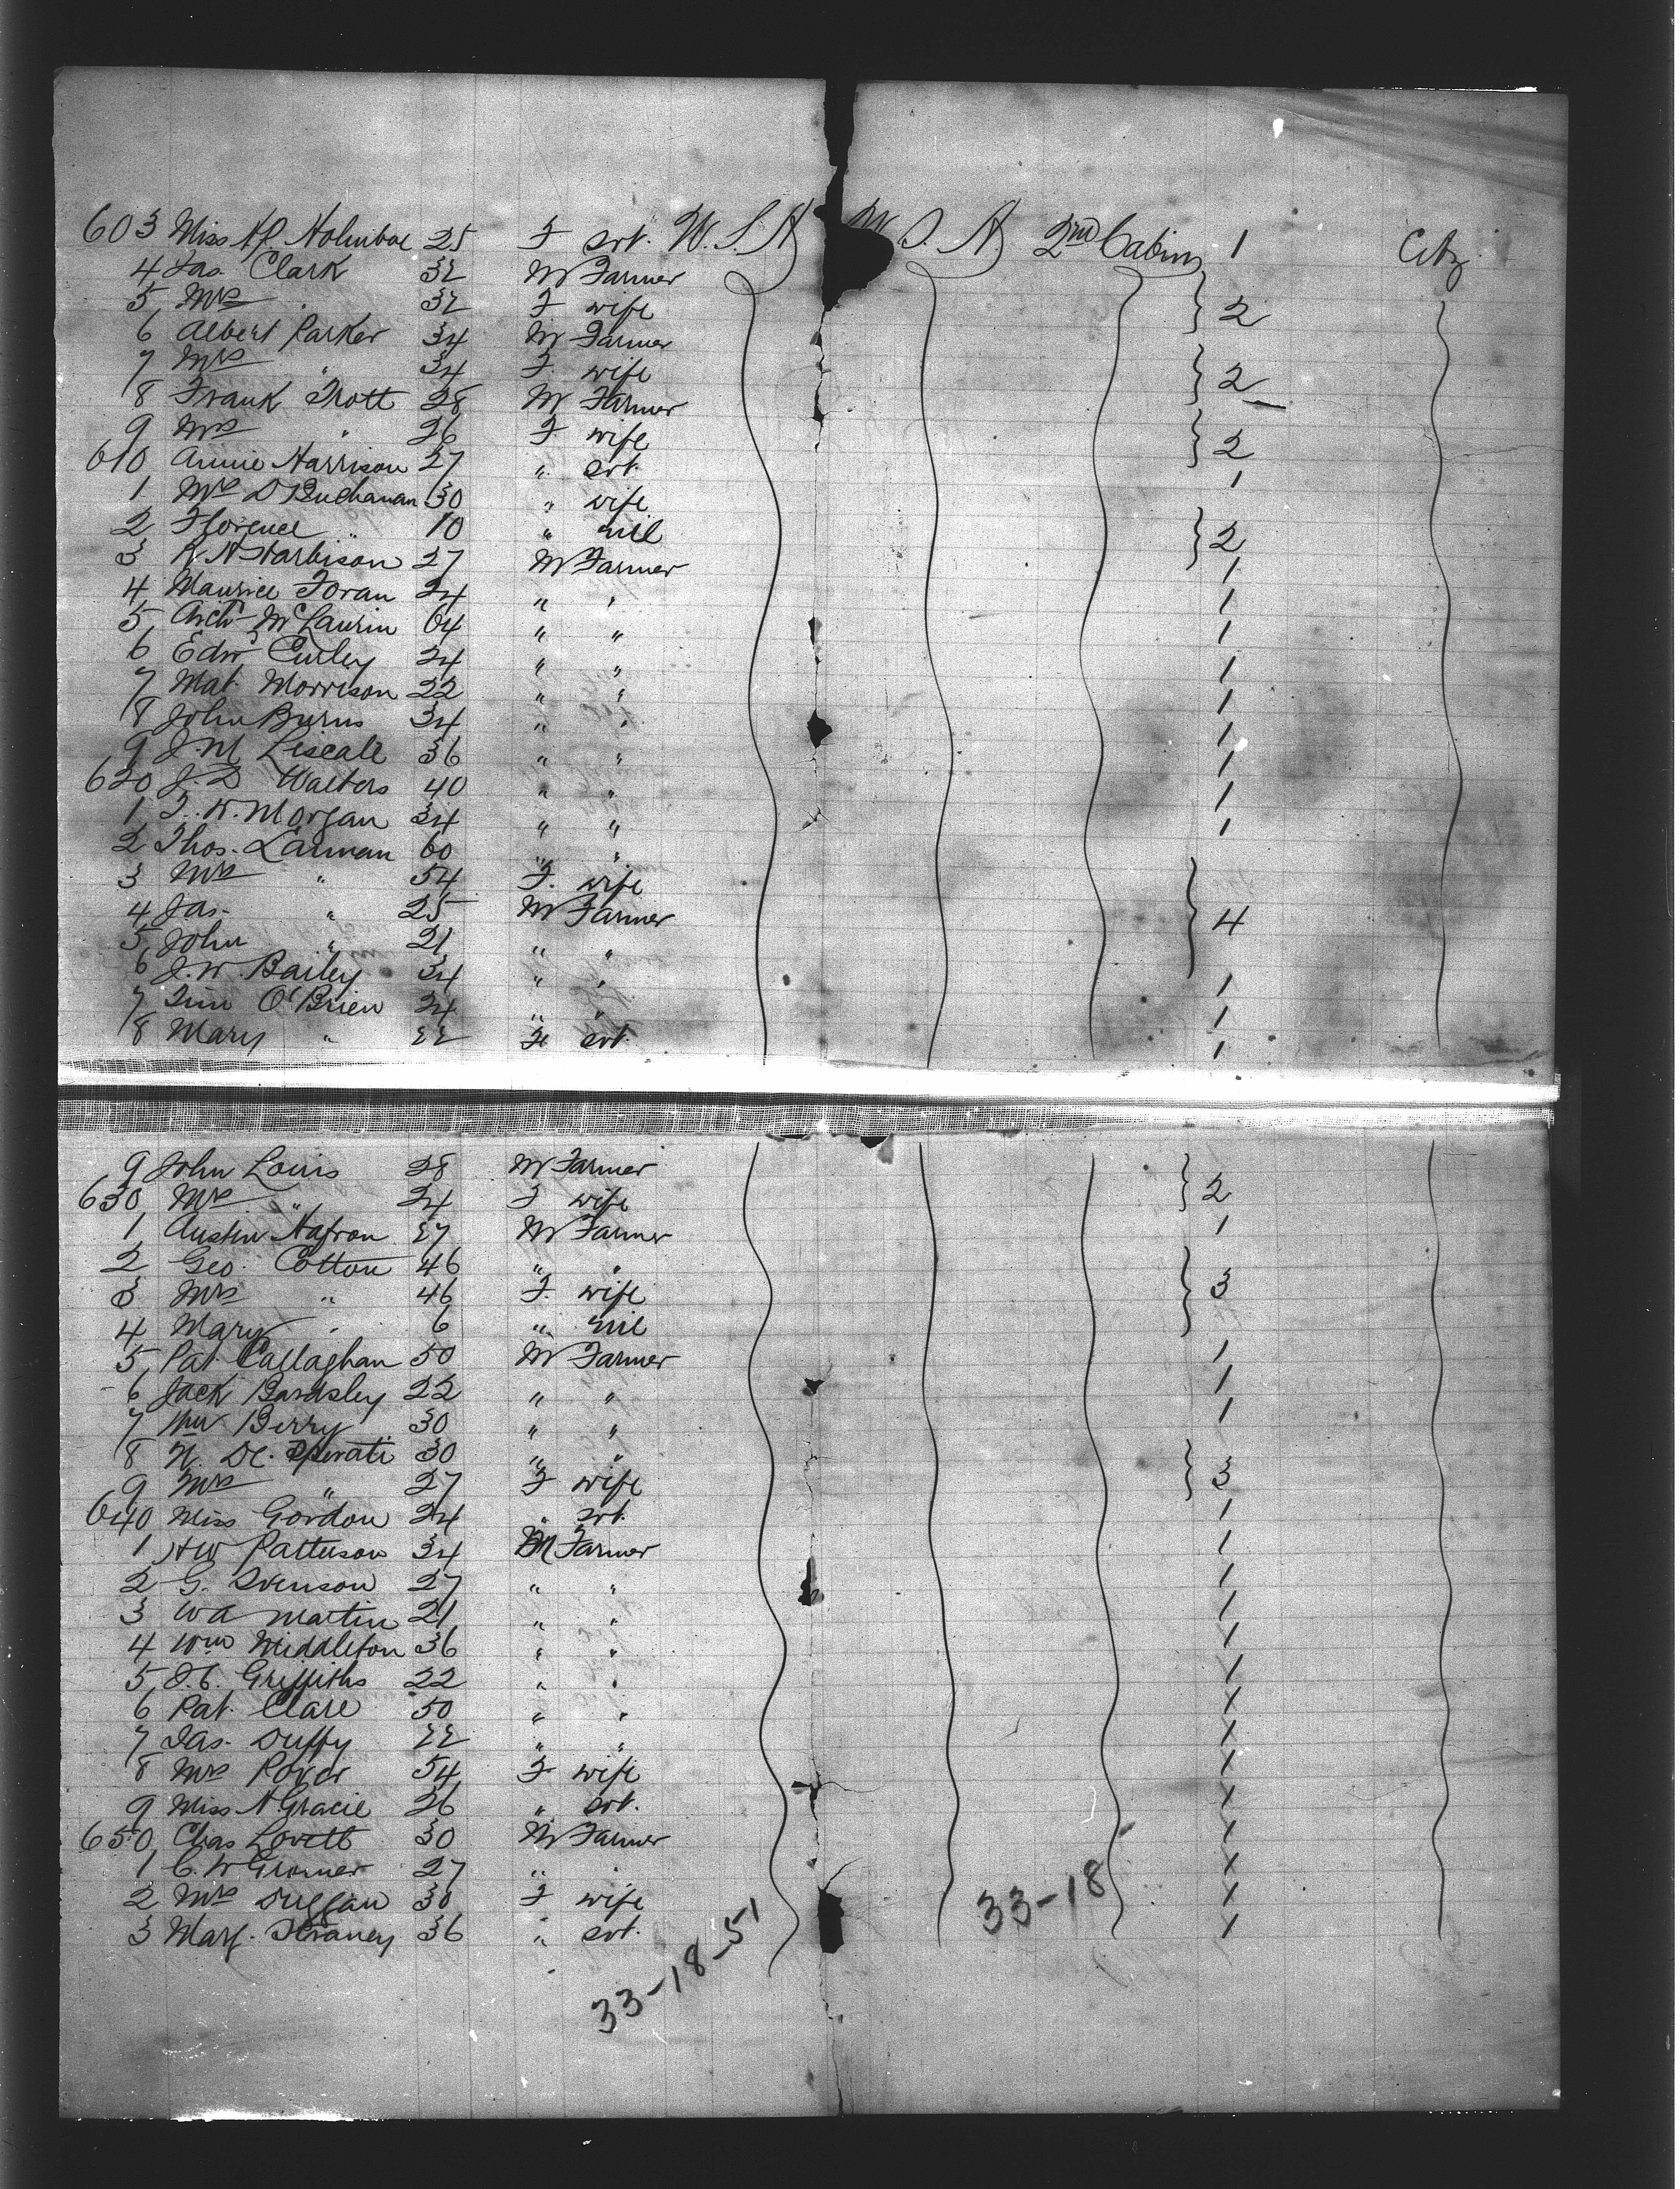 603 Miss Holmboe 25 F svt. U.S.A U.S.A 2nd Cabin 1 Citz
4 Jas. Clark 32 M Farmer
5 Mrs " 32 F wife 2
6 Albert Parker 34 M Farmer
7 Mrs " 34 F. wife 2
8 Frank Trott 28 M Farmer
9 Mrs " 26 F wife 2
610 Annie Harrison 27 " svt. 1
1 Mrs D Buchanan 30 " wife
2 Florence " 10 " nil 2
3 R. A Harbison 27 M Farmer 1
4 Maurice Foran 24 " " 1
5 Arch McLaurin 64 " " 1
6 Edw Curley 24 " " 1
7 Mat. Morrison 22 " " 1
8 John Burns 34 " " 1
9 J. M. 36 " " 1
620 J. D Walters 40 " " 1
1 T. K. Morgan 34 " " 1
2 Thos. Lannan 60 " "
3 Mrs " 54 F. wife
4 Jas. " 25 M Farmer 4
5 John " 21 " "
6 J. W. Bailey 34 " " 1
7 Tim O'Brien 24 " " 1
8 Mary " 22 F svt. 1
9 John Louis 28 M Farmer
630 Mrs " 24 F wife 2
1 Austin 27 M Farmer 1
2 Geo. Cotton 46 " "
3 Mrs " 46 F. wife 3
4 Mary " 6 " nil
5 Pat Callaghan 50 M Farmer 1
6 Jack Bardsley 22 " " 1
7 Wm Berry 30 " " 1
8 N. De. Sperati 30 " "
9 Mrs " 27 F wife 3
640 Miss Gordon 24 " svt. 1
1 HW Patterson 34 M Farmer 1
2 G. Svenson 27 " " 1
3 W A Martin 21 " " 1
4 Wm Middleton 36 " " 1
5 Griffiths 22 " " 1
6 Pat. Clare 50 " " X
7 Jas. Duffy 22 " " X
8 Mrs Power 54 F wife X
9 Miss N Gracie 26 " svt. X
650 Chas Lovett 30 M Farmer X
1 C. W Gromer 27 " " X
2 Mrs Duggan 30 F wife X
3 Mary 36 " svt. X
33-18
33-18-51